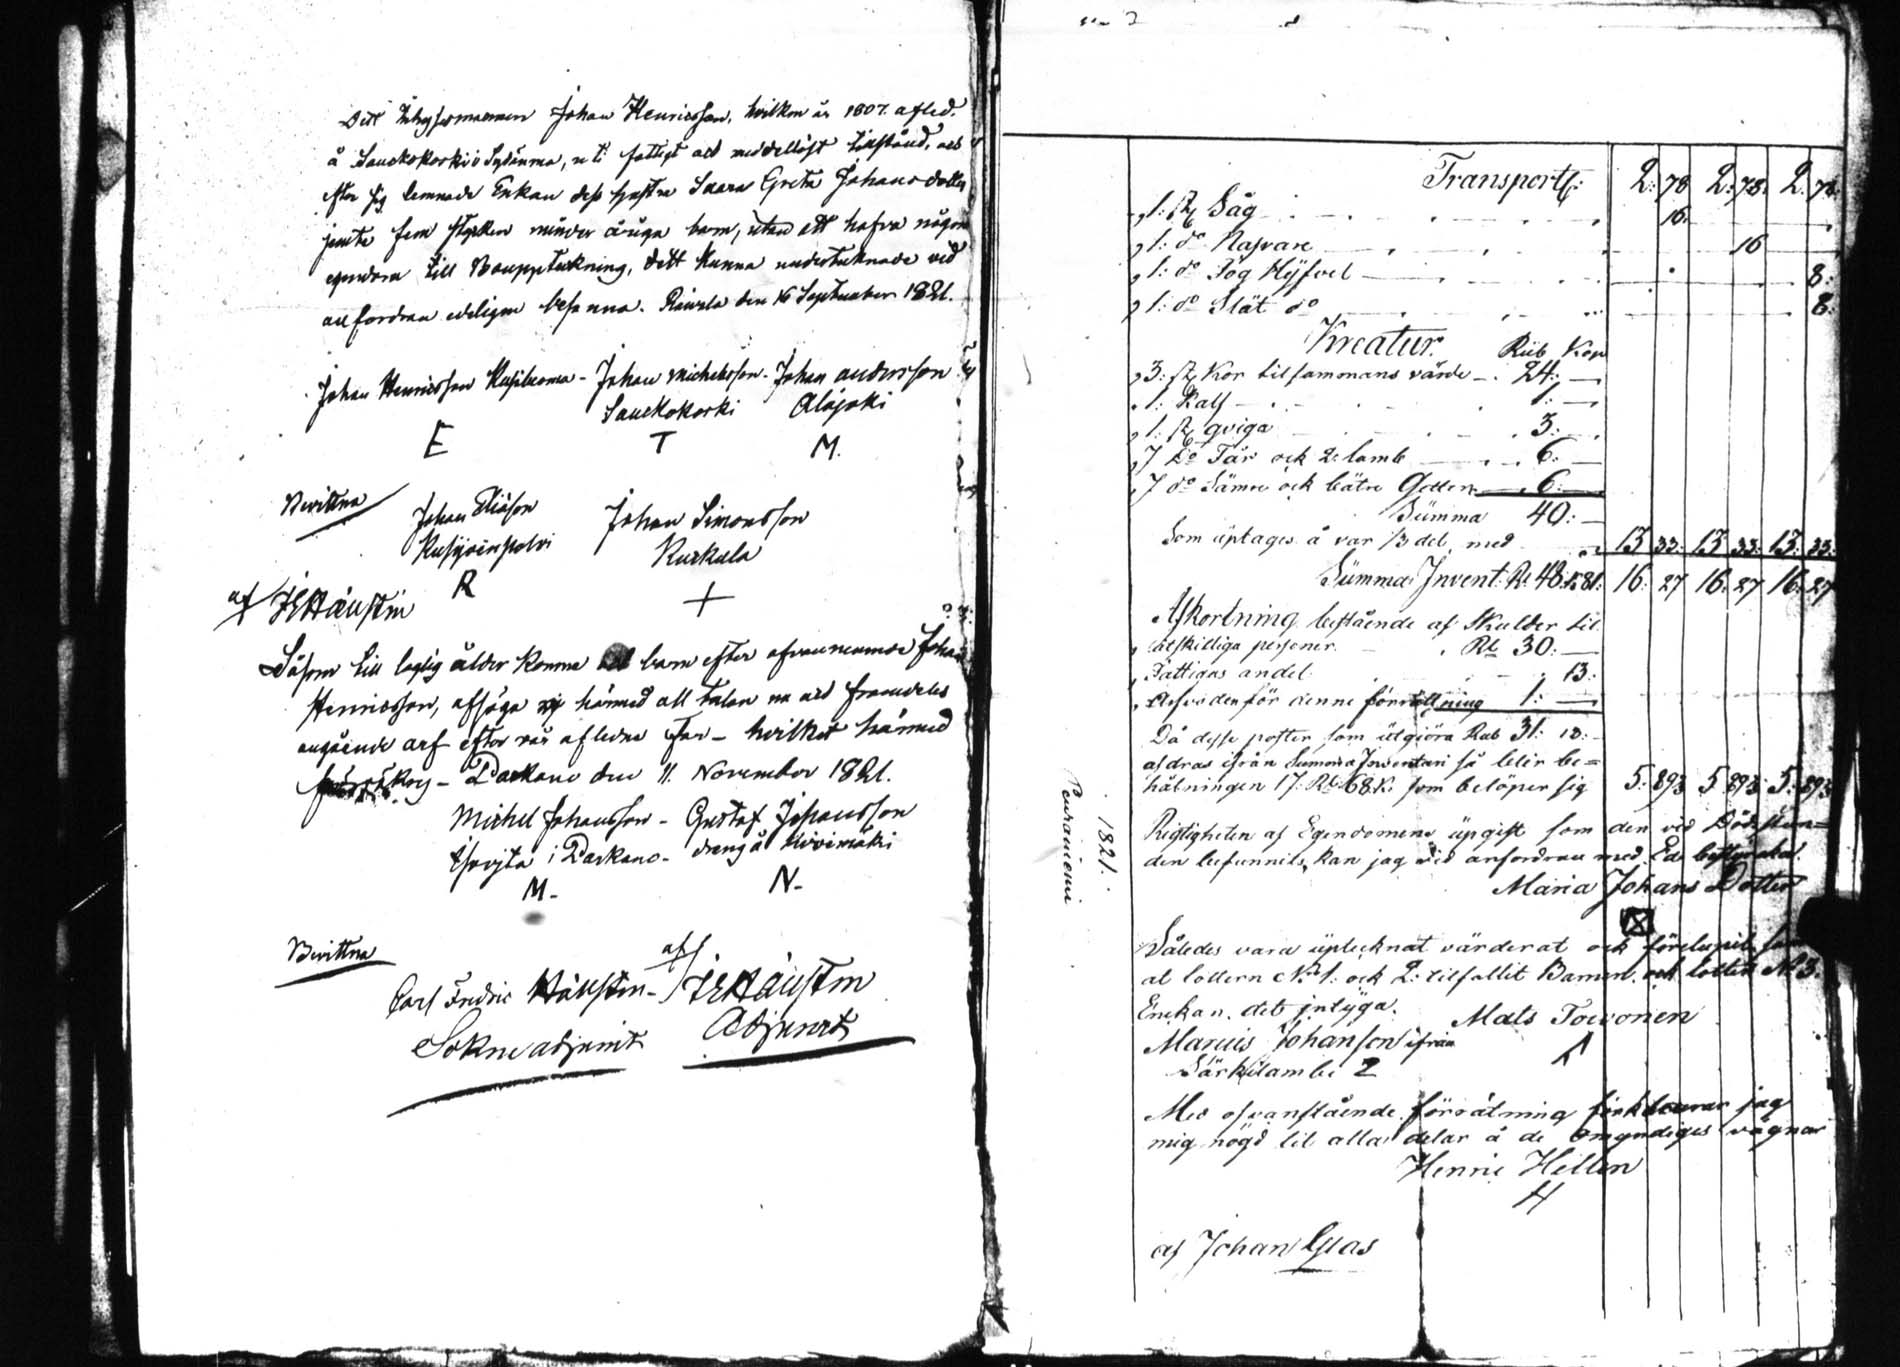 Johan Henricsson, hvilken år 1807. afled.
å Sauckokorki i Sydänma, uti fattigt och medellöst tillstånd, och
efter sig lemnade Enkan dess hustru Saara Greta Johansdotter
jemte fem stycken minder åriga barn, utan att hafva någon
egendom till Bouppteckning, dett kunna undertecknade vid
anfordran edeligen besanna. den 16 September 1821.
Johan Henricsson - Johan Michelsson - Johan andersson
Sauckokorki Alajoki
E T M.
Bevittna Johan Eliason Johan Simonsson
Kurkula
R +
af
Såsom till laglig ålder komne barn efter ofvannemnde Johan
Henricsson, afsäga vij härmed all talan nu och framdeles
angående arf efter vår afledne Far - hvilket härmed
- Parkano den 11. November 1821.
Michel Johansson - Gustaf Johansson
i Parkano - dräng å Kivimäki
M - N -
Bevittna
af
Carl Fredric
Sokne adjunct Adjunct
Transport: 2: 78 2: 78. 2: 78.
1: st Såg 16.
1: do Nafvare 16
1: do Fog Hyfvel 8:
1: do Slät do 8:
Kreatur. Rub Kop
3: st Kor tilsammans värde 24: —
1: Kalf 1: —
1: st qviga 3: —
7 do Får ock 2 lamb 6: —
7 do Sämre ock bätre Getter 6: —
Summa 40: —
Som uptages å var 1/3 del med 13 33: 13 33: 13: 33:
Summa Invent: Rl 48: k 81: 16: 27 16: 27 16: 27
Afkortning bestående af Skulder til
åtskilliga personer Rl 30: —
Fattigas andel 13:
Arfvoden för denne förrättning 1: —
Då desse poster som utgiöra Rub 31: 13: -
afdras ifrån Summa Inventarii så blir be=
hålningen 17: Rl 68 k. som belöper sig 5: 893 5 893: 5: 893
Rigtigheten af Egendomens upgift som den vid Döds stun=
den befunnits, kan jag vid anfordran med Ed bestyrcka.
Maria Johans Dotter
Således vara uptecknat värderat ock förelupit
at lottern No 1: ock 2: tilfallit Barnen, ock lotten No 3:
Enckan, det intyga. Mats Toivonen
Marcus Johanson ifrån
Särkilambi 2
Med ofvanstående förrätning förklarar jag
mig nögd til alla delar å de omyndiges vägnar
Henric Hellen
H
af Johan Glas
1821.